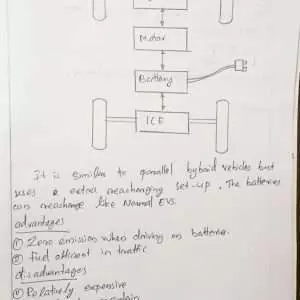 Motor
Battery
ICE
It is similar to parallel hybrid vehicles but
uses a extra recharging set-up. The batteries
can recharge like Normal EVs.
advantages
① Zero emission when driving on batterie.
② fuel efficient in traffic
disadvantages
① Relatively expensive